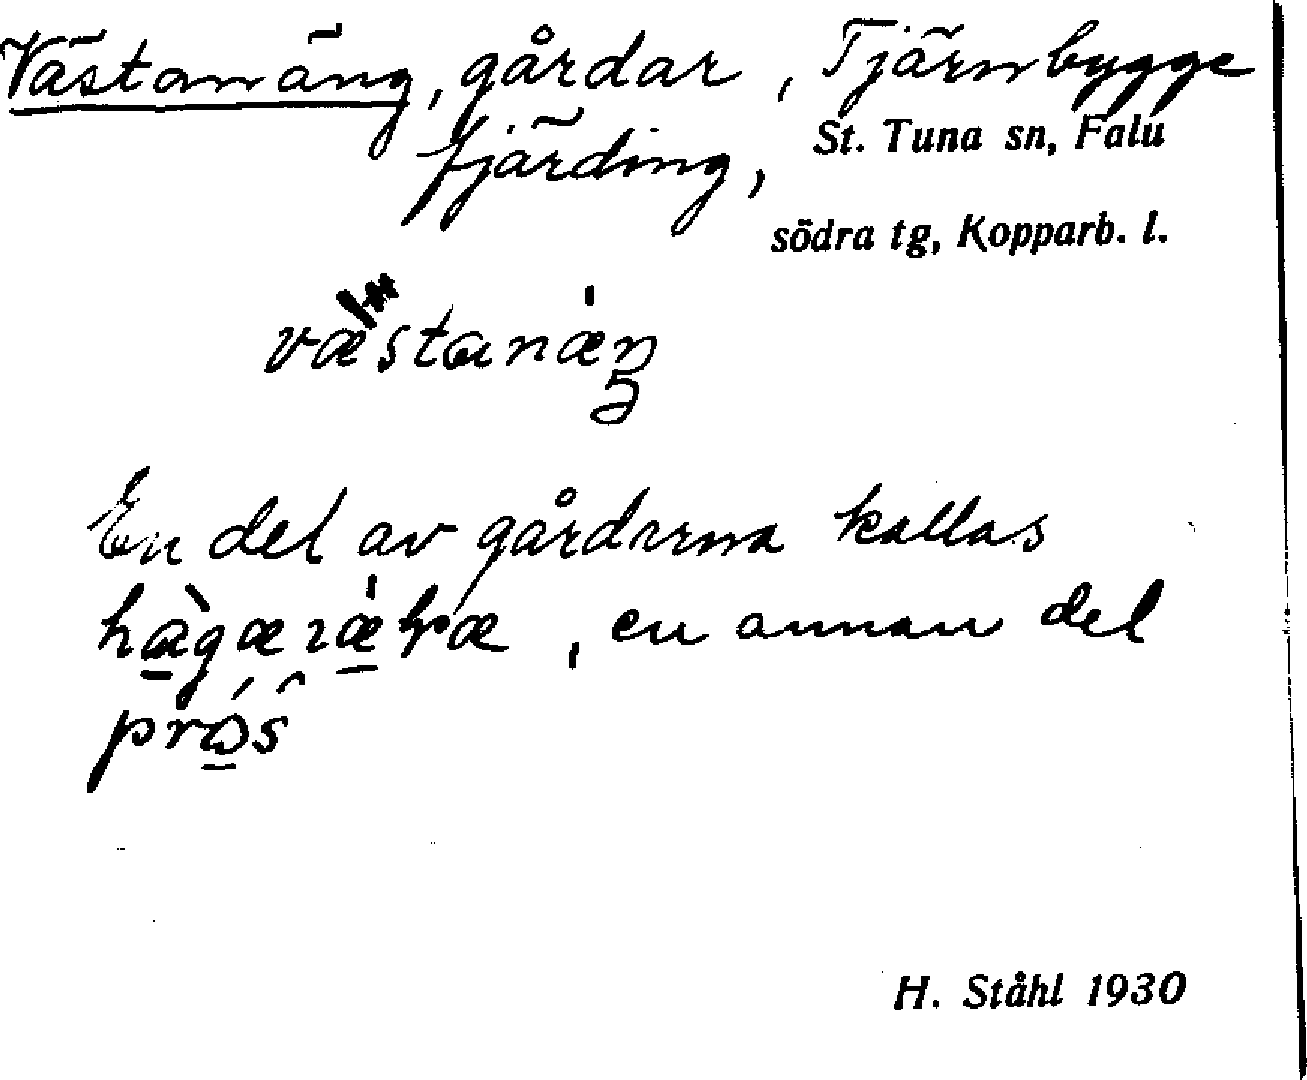 Västanäng, gårdar, Tjärnbygge
fjärding, St. Tuna sn, Falu
södra tg, Kopparb. l.
væstanæŋ
En del av gårderna kallas
, en annan del
H. Ståhl 1930